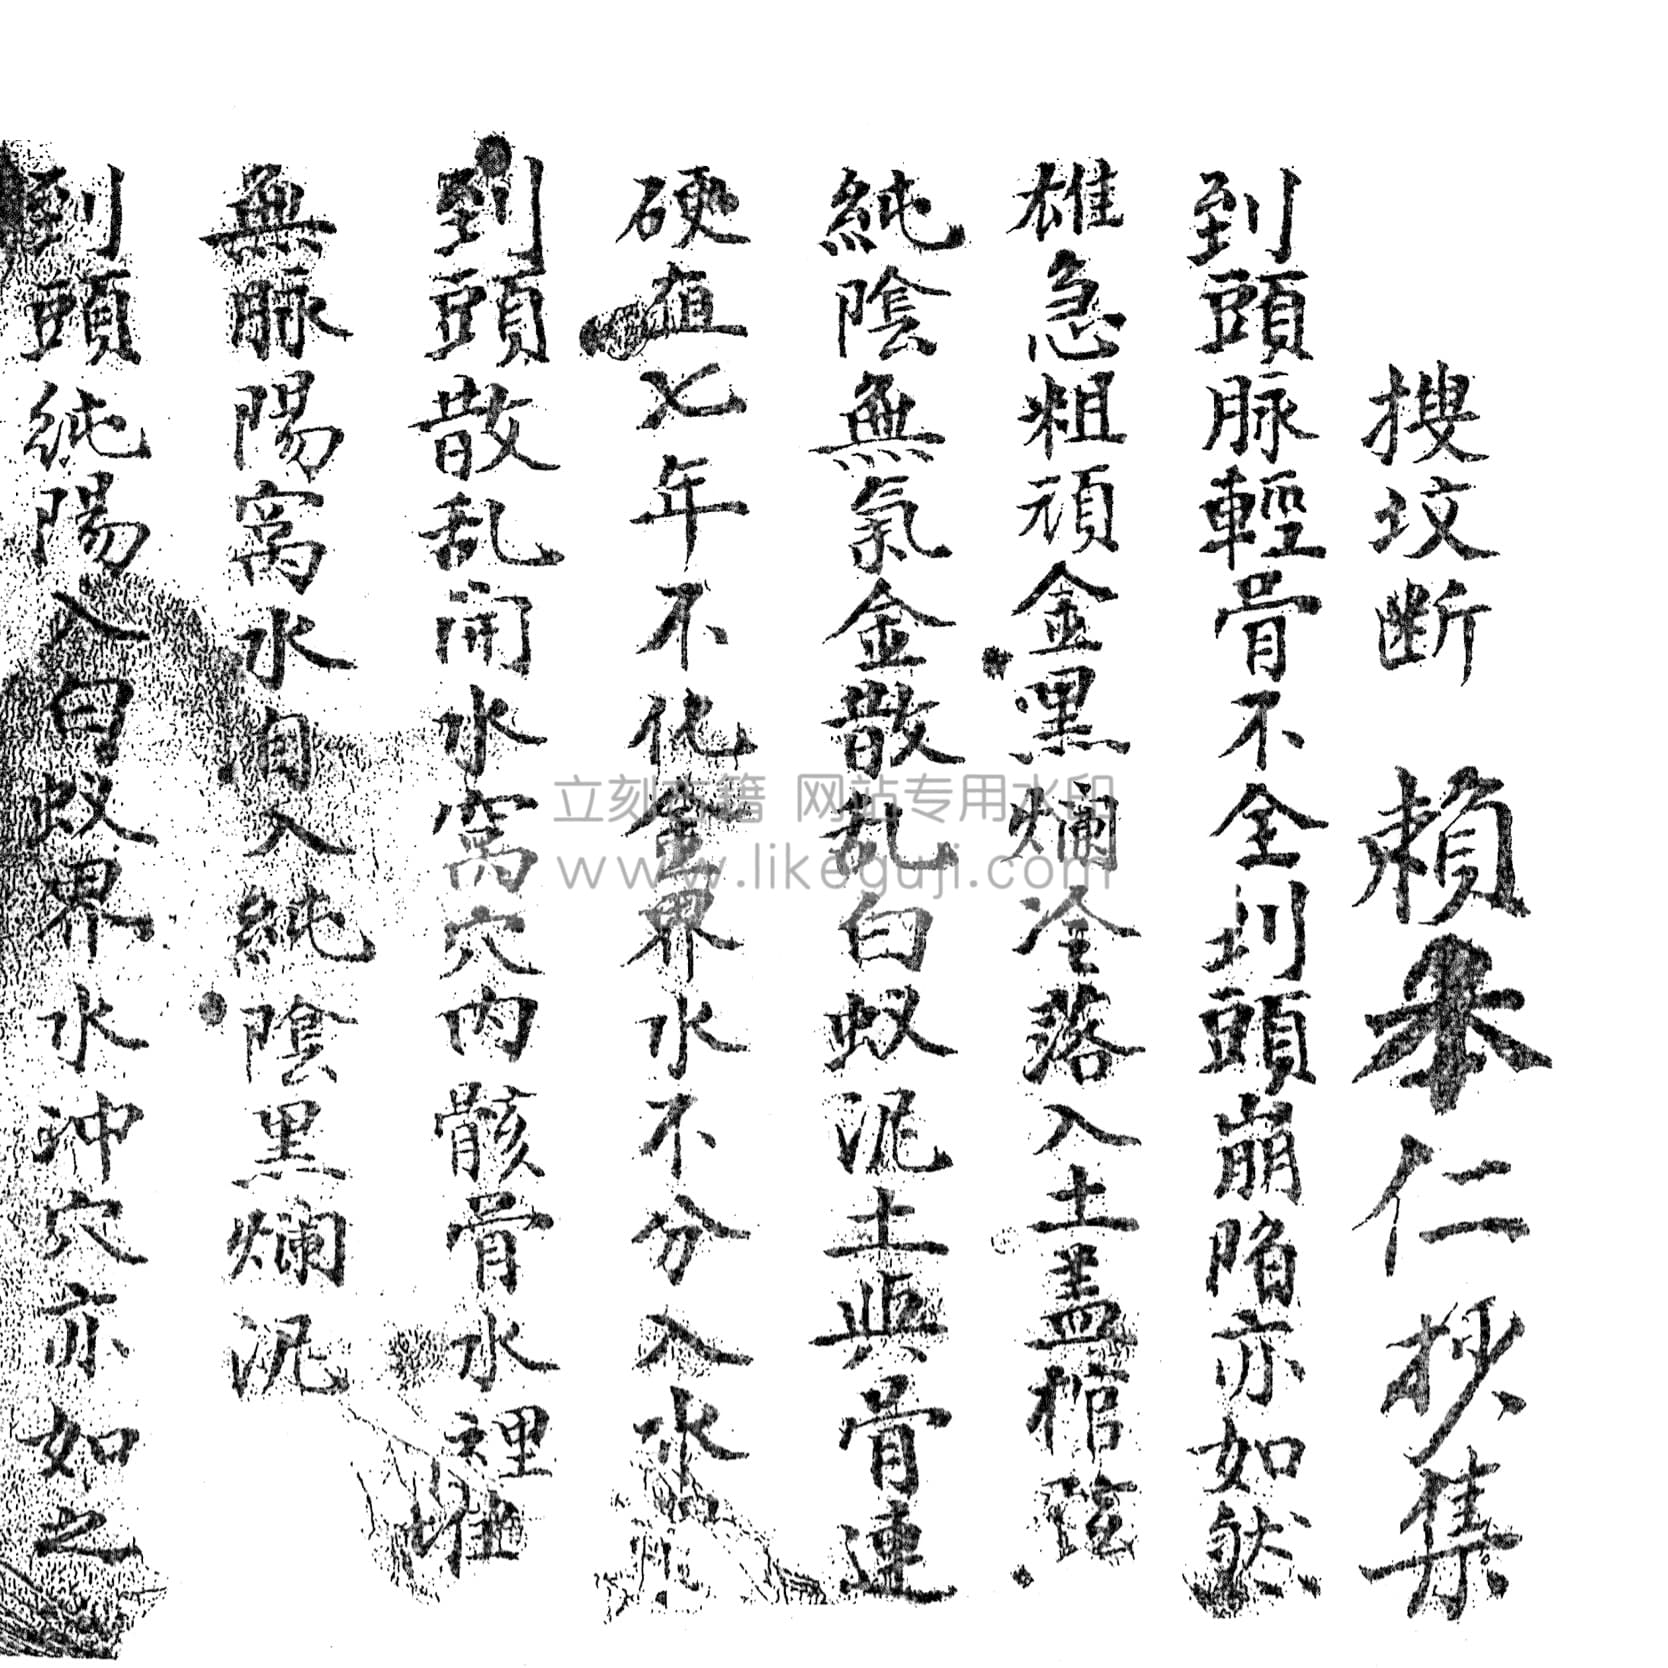 搜坟断 賴仁抄集
到頭脉輕骨不全到頭崩陷亦如然
雄急粗頑金黑爛冷落入土蓋棺
純陰無氣金散乱白蚁泥土與骨連
硬直七年不化金界水不分入水
到頭散乱開水窩穴内骸骨水裡堆
無脉陽窩水自入純陰黑爛泥
到頭純陽入白蚁界水沖穴亦如之
立刻古籍 网站专用水印
www.likeguji.com